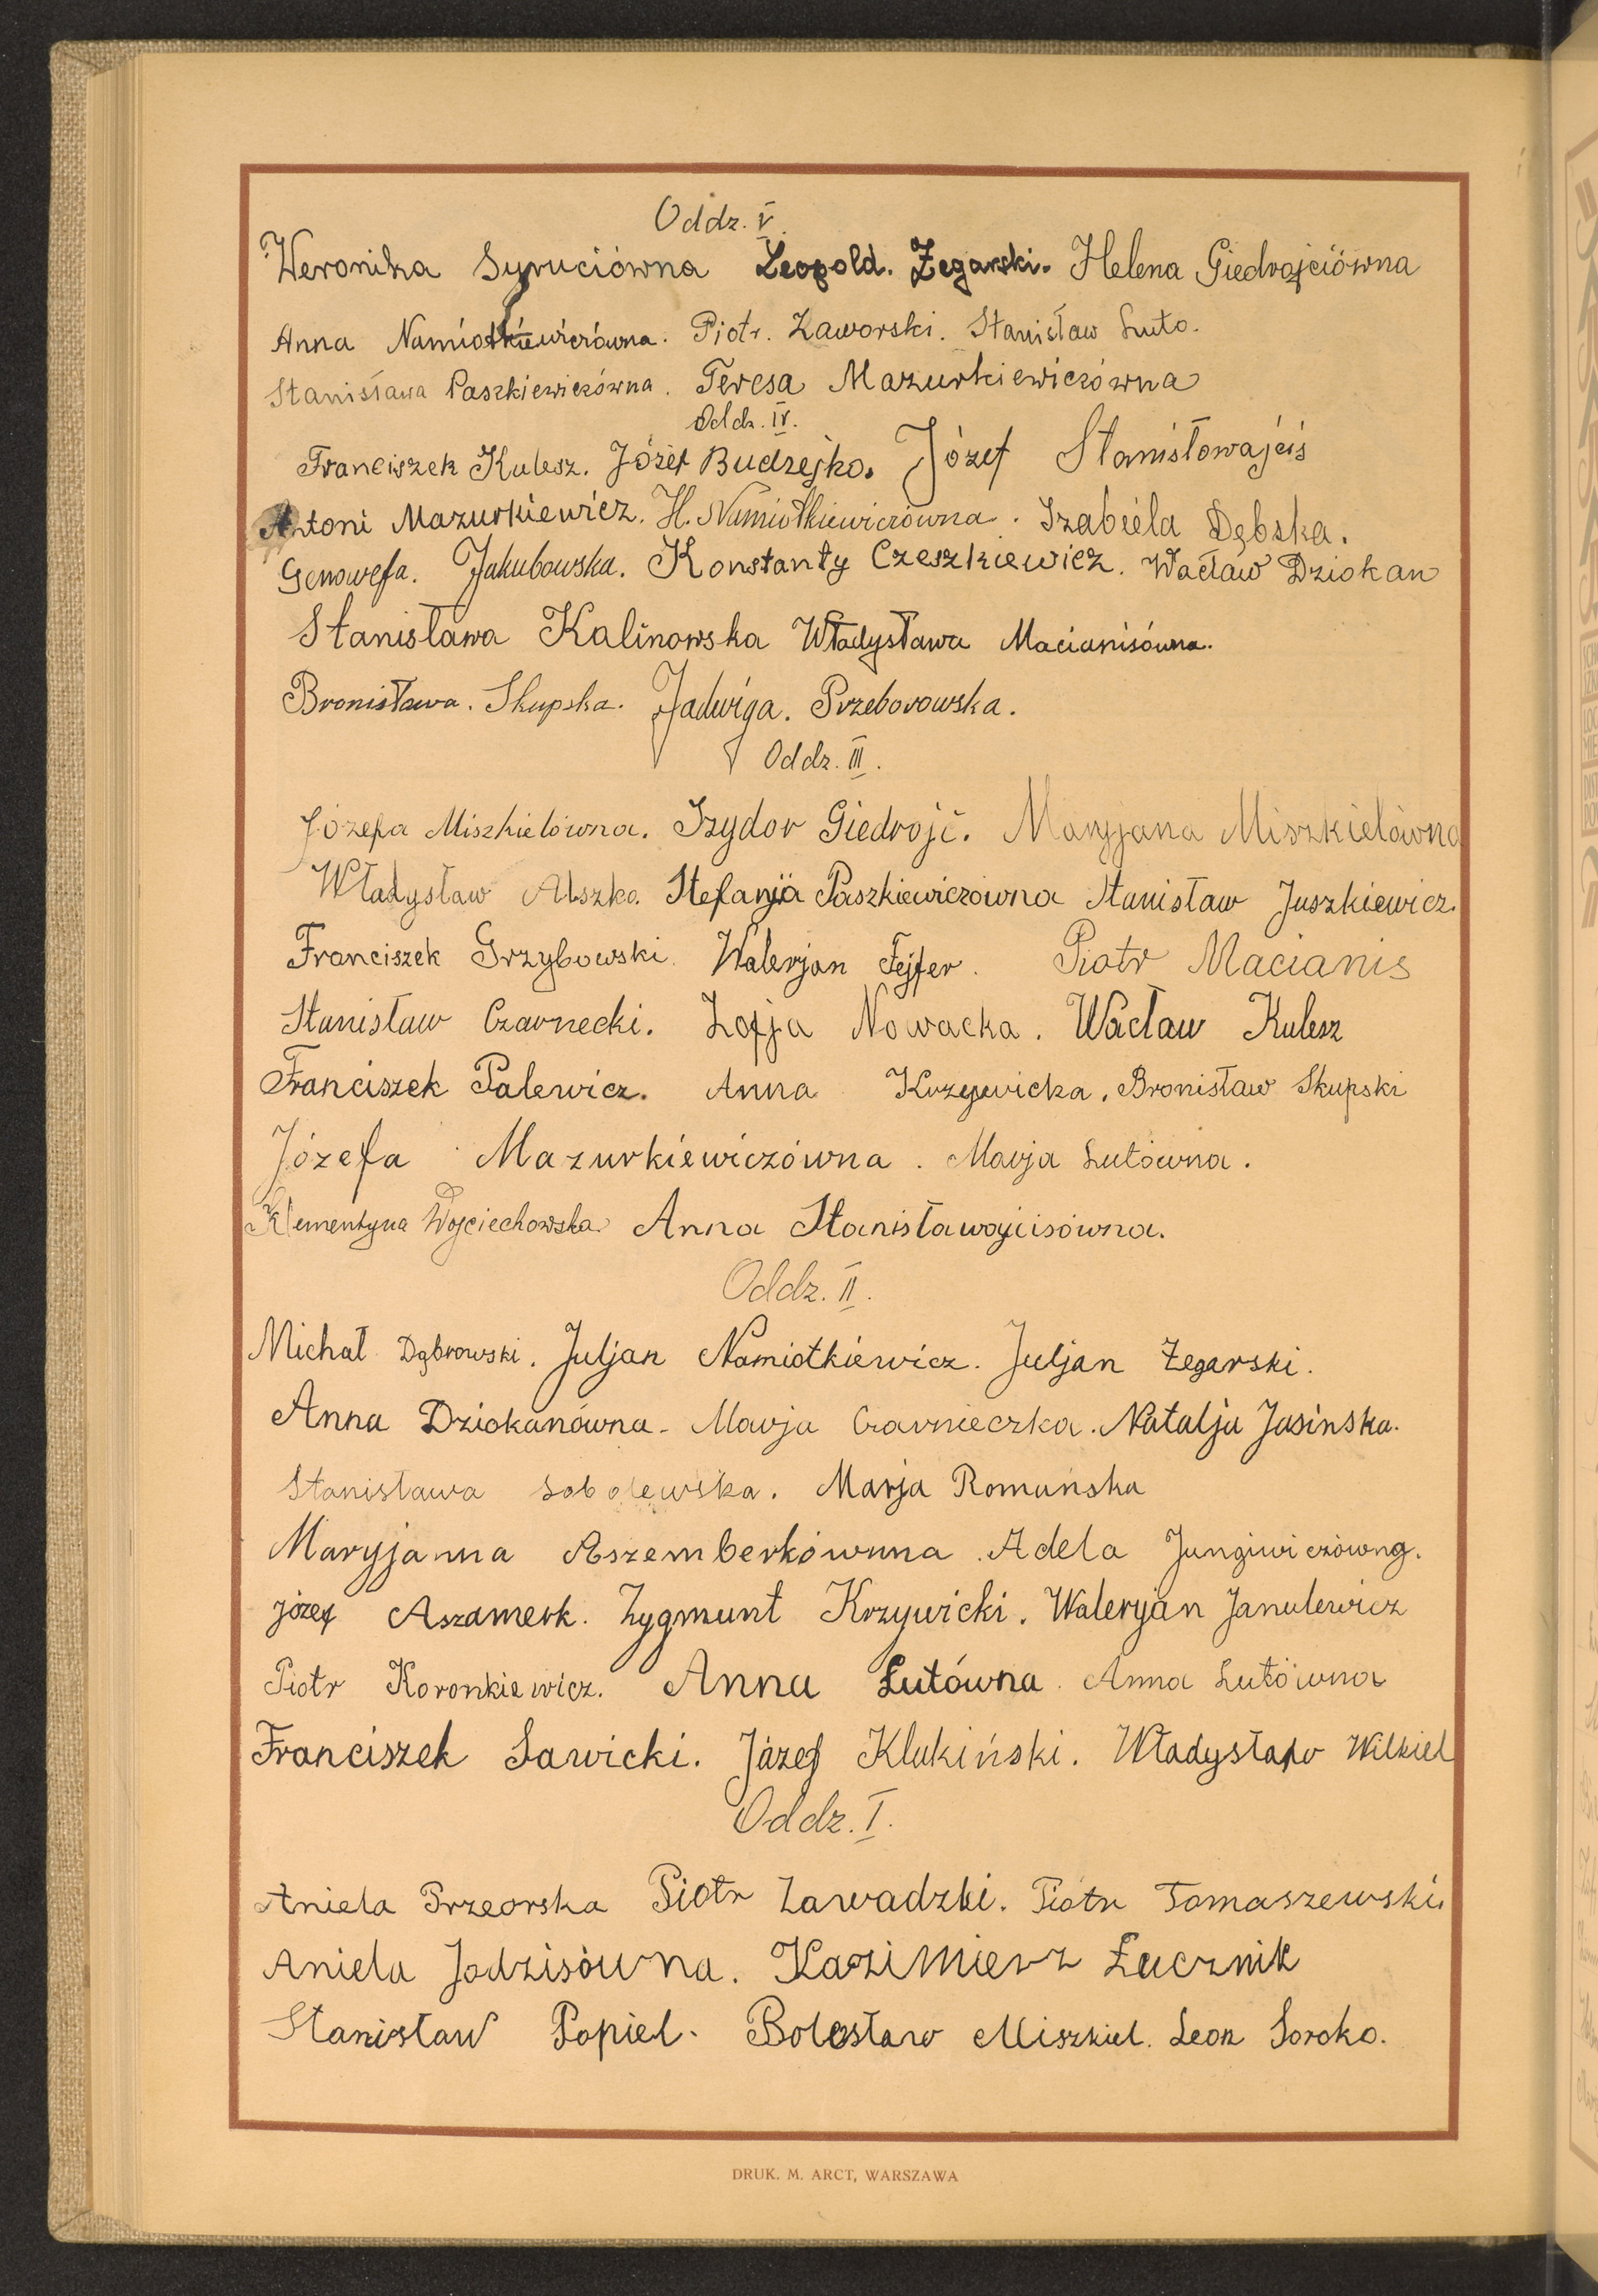 Oddz. V.
Weronika Syruciówna Leopold. Żegarski. Helena Giedrojciówna
Anna Namiotkiewiczówna. Piotr. Zaworski. Stanisław Luto.
Stanisława Paszkiewiczówna. Teresa Mazurkiewiczówna
Oddz. IV.
Franciszek Kulesz. Józef Budzejko. Józef Stanisłowajcis
Antoni Mazurkiewicz. H. Namiotkiewiczówna. Izabela Dębska.
Genowefa. Jakubowska. Konstanty Czeszkiewicz. Wacław Dziokan
Stanisława Kalinowska Władysława Macianisówna.
Bronisława. Skupska. Jadwiga. Przeborowska.
Oddz. III.
Józefa Miszkielówna. Izydor Giedrojć. Maryjana Miszkielówna
Władysław Alszko. Stefanja Paszkiewiczówna Stanisław Juszkiewicz.
Franciszek Grzybowski. Walerjan Fejfer. Piotr Macianis
Stanisław Czarnecki. Zofja Nowacka. Wacław Kulesz
Franciszek Palewicz. Anna Krzywicka. Bronisław Skupski
Józefa Mazurkiewiczówna. Marja Lutówna.
Klementyna Wojciechowska Anna Stanisławojcisówna.
Oddz. II.
Michał Dąbrowski. Juljan Namiotkiewicz. Juljan Żegarski.
Anna Dziokanówna. Marja Czarnieczka. Natalja Jasinska.
Stanisława Sobolewska. Marja Romańska
Maryjanna Aszemberkównna. Adela
józef Aszamerk. Zygmunt Krzywicki. Waleryjan Janulewicz
Piotr Koronkiewicz. Anna Lutówna. Anna Lutówna
Franciszek Sawicki. Józef Klukiński. Władysław Wilkiel
Oddz. I.
Aniela Przeorska Piotr Zawadzki. Piotr Tomaszewski.
Aniela Jodzisówna. Kazimierz Łucznik
Stanisław Popiel. Bolesław Miszkiel. Leon Soroko.
DRUK. M. ARCT, WARSZAWA